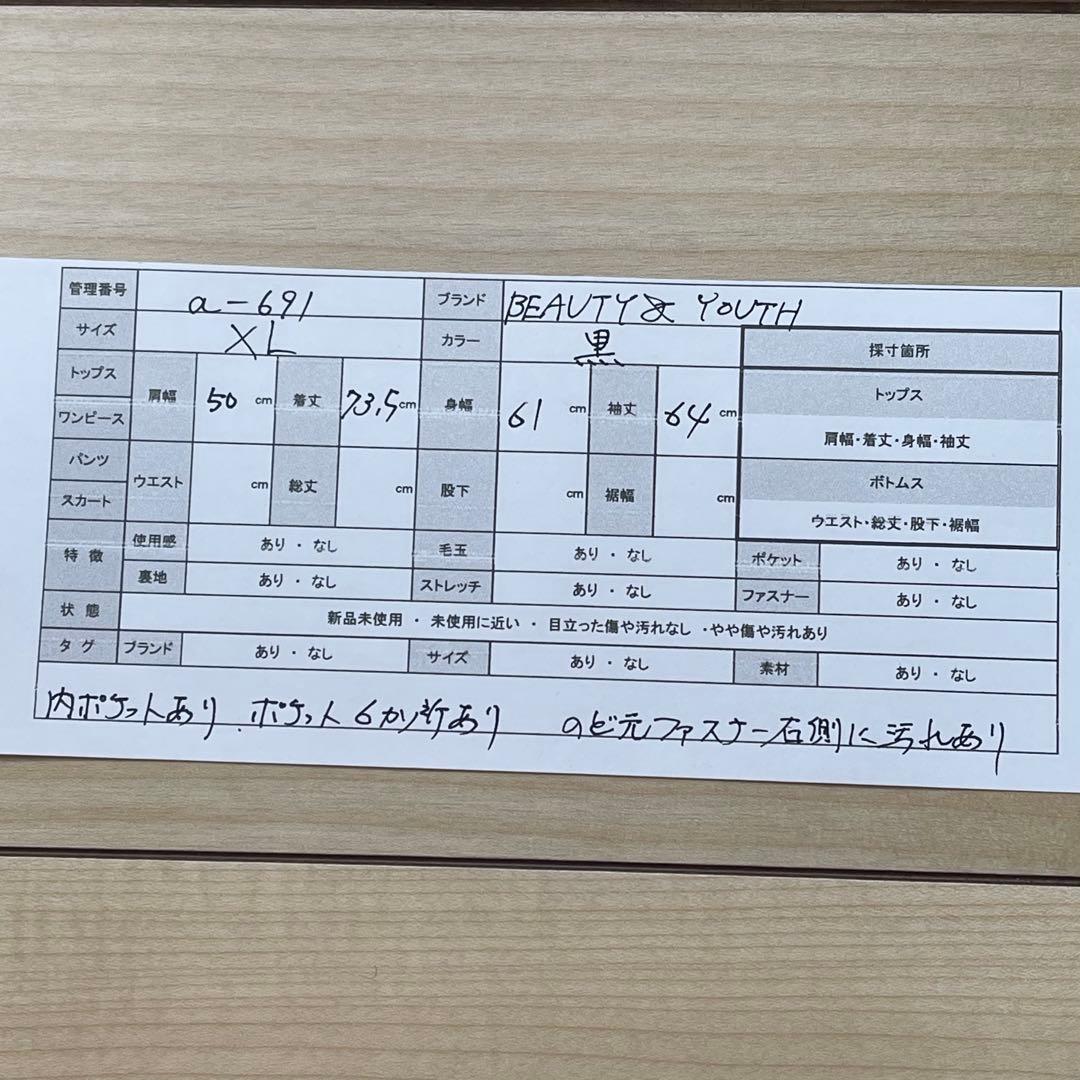 管理番号 a-691 ブランド BEAUTY & YOUTH
サイズ XL カラー 黒 採寸箇所
トップス 肩幅 50 cm 着丈 73.5 cm 身幅 61 cm 袖丈 64 cm トップス
ワンピース 肩幅・着丈・身幅・袖丈
パンツ ウエスト cm 総丈 cm 股下 cm 裾幅 cm ボトムス
スカート ウエスト・総丈・股下・裾幅
特徴 使用感 あり ・ なし 毛玉 あり ・ なし ポケット あり ・ なし
裏地 あり ・ なし ストレッチ あり ・ なし ファスナー あり ・ なし
状態 新品未使用 ・ 未使用に近い ・ 目立った傷や汚れなし ・やや傷や汚れあり
タグ ブランド あり ・ なし サイズ あり ・ なし 素材 あり ・ なし
内ポケットあり、ポケット6か所あり のど元ファスナー右側に汚れあり